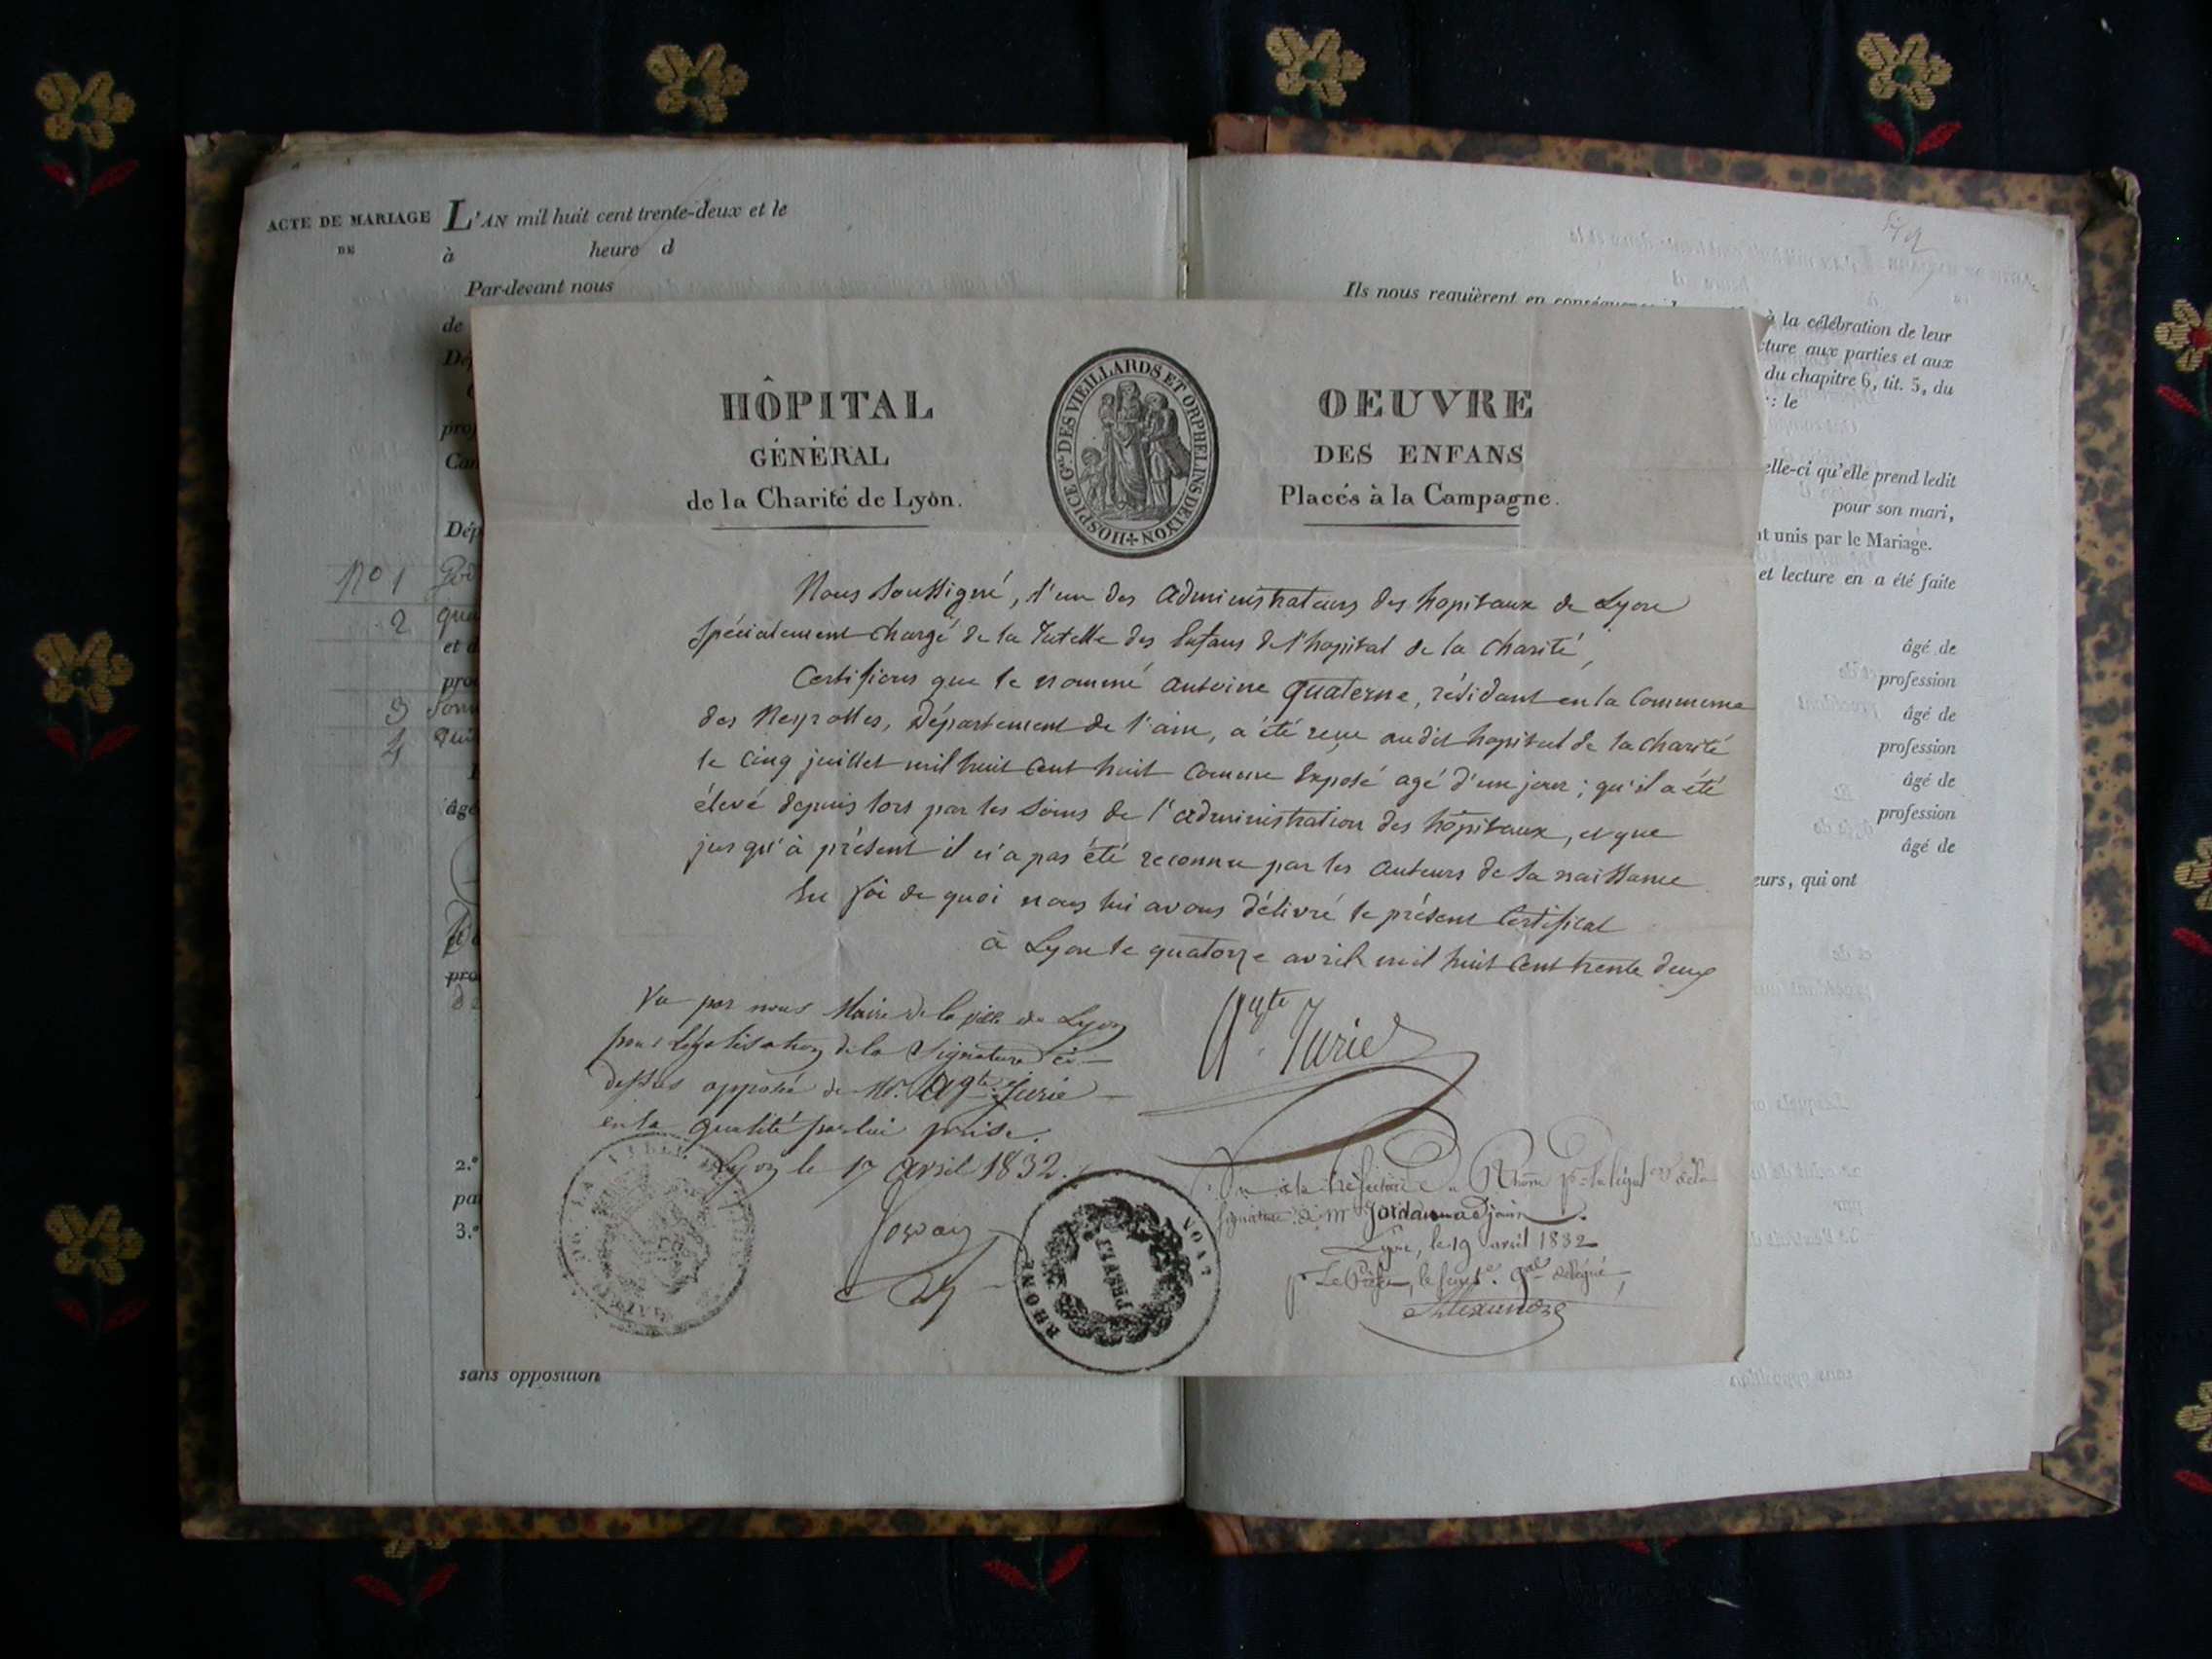 ACTE DE MARIAGE
DE
L'AN mil huit cent trente-deux et le
à heure d
Par-devant nous
de
Dép
pro
Can
Dép
No 1
2 qua
et d
pro
3
4 qui
âgé
pro
2.°
pa
3.°
sans opposition
Ils nous requièrent en
à la célébration de leur
cture aux parties et aux
du chapitre 6, tit. 5, du
: le
elle-ci qu'elle prend ledit
pour son mari,
nt unis par le Mariage.
et lecture en a été faite
âgé de
profession
âgé de
profession
âgé de
profession
âgé de
eurs, qui ont
HÔPITAL
GÉNÉRAL
de la Charité de Lyon.
HOSPICE Gal. DES VIEILLARDS ET ORPHELINS DE LYON
OEUVRE
DES ENFANS
Placés à la Campagne.
Nous soussigné, l'un des administrateurs des hopitaux de Lyon
spécialement chargé de la Tutelle des Enfans de l'hopital de la charité,
Certifions que le nommé antoine Quaterne, résidant en la Commune
des Neyrolles, Département de l'ain, a été reçu audit hopital de la charité
le cinq juillet mil huit cent huit comme Exposé agé d'un jour; qu'il a été
élevé depuis lors par les soins de l'administration des hôpitaux, et que
jusqu'à présent il n'a pas été reconnu par les auteurs de sa naissance
En foi de quoi nous lui avons délivré le présent Certificat
à Lyon le quatorze avril mil huit cent trente deux
Agte Jurie
Vu par nous Maire de la ville de Lyon
pour légalisation de la signature ci-
dessus apposée de Mr. Agte Jurie
en la qualité par lui prise.
Lyon le 17 avril 1832.
Vu à la Préfecture du Rhône pr. la légalon de la
signature de Mr Jordan adjoint.
Lyon, le 19 avril 1832
Le Préfet, le secrét. gal délégué,
Alexandre
RHONE
PRÉFET